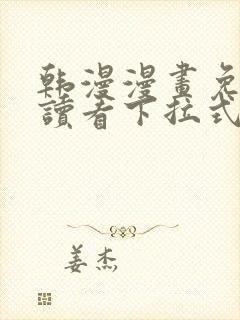 韩漫漫畫免
讀者下拉式
姜杰